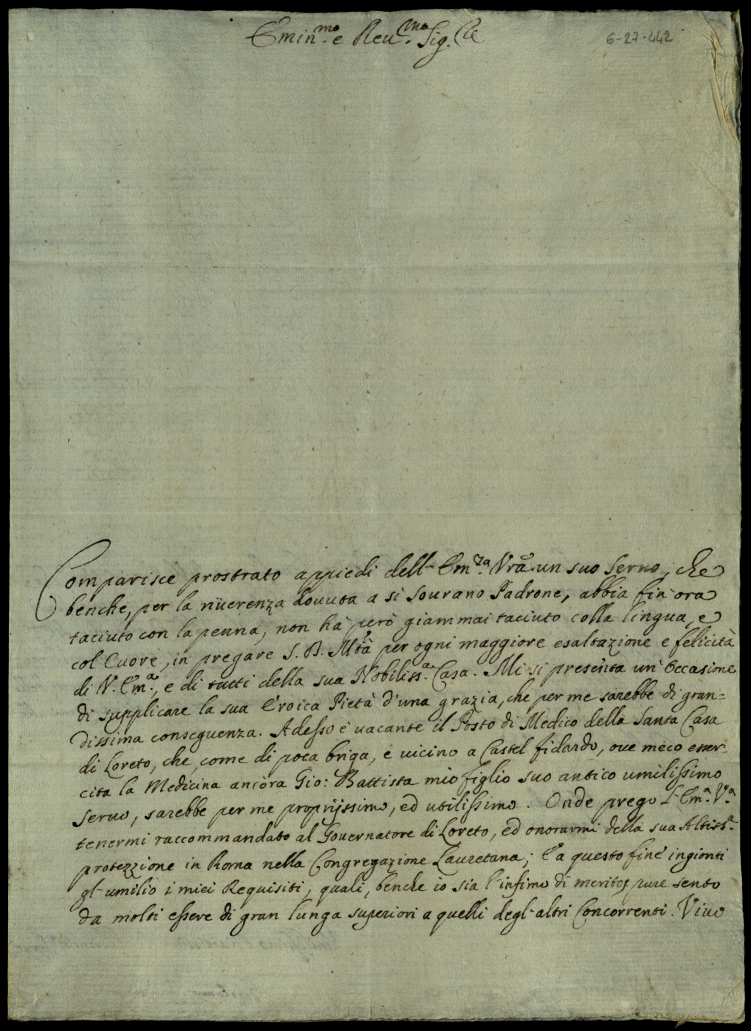 Emin.mo e Reu.mo Sig.re
6-27-442
Comparisce prostrato appiedi dell'Em.za Vra un suo Seruo, che
benche, per la riuerenza douuta a si Sourano Padrone, abbia fin'ora
taciuto con la penna, non ha però giammai taciuto colla lingua, e
col Cuore, in pregare S. D. Mtà per ogni maggiore esaltazione e felicità
di V. Em.a, e di tutti della sua Nobiliss.a Casa. Mi si presenta un'Occasione
di supplicare la sua Eroica Pietà d'una grazia, che per me sarebbe di gran-
dissima conseguenza. Adesso è uacante il Posto di Medico della Santa Casa
di Loreto, che come di poca briga, e uicino a Castel fidardo, oue meco eser-
cita la Medicina ancora Gio: Battista mio figlio suo antico umilissimo
seruo, sarebbe per me proprijssimo, ed utilissimo. Onde prego l'Em.a V.a
tenermi raccommandato al Gouernatore di Loreto, ed onorarmi della sua Altiss.a
protezzione in Roma nella Congregazione Lauretana; E a questo fine ingionti
gl'umilio i miei Requisiti, quali, benche io sia l'infimo di merito, pure sento
da molti essere di gran lunga superiori a quelli degl'altri Concorrenti. Viuo